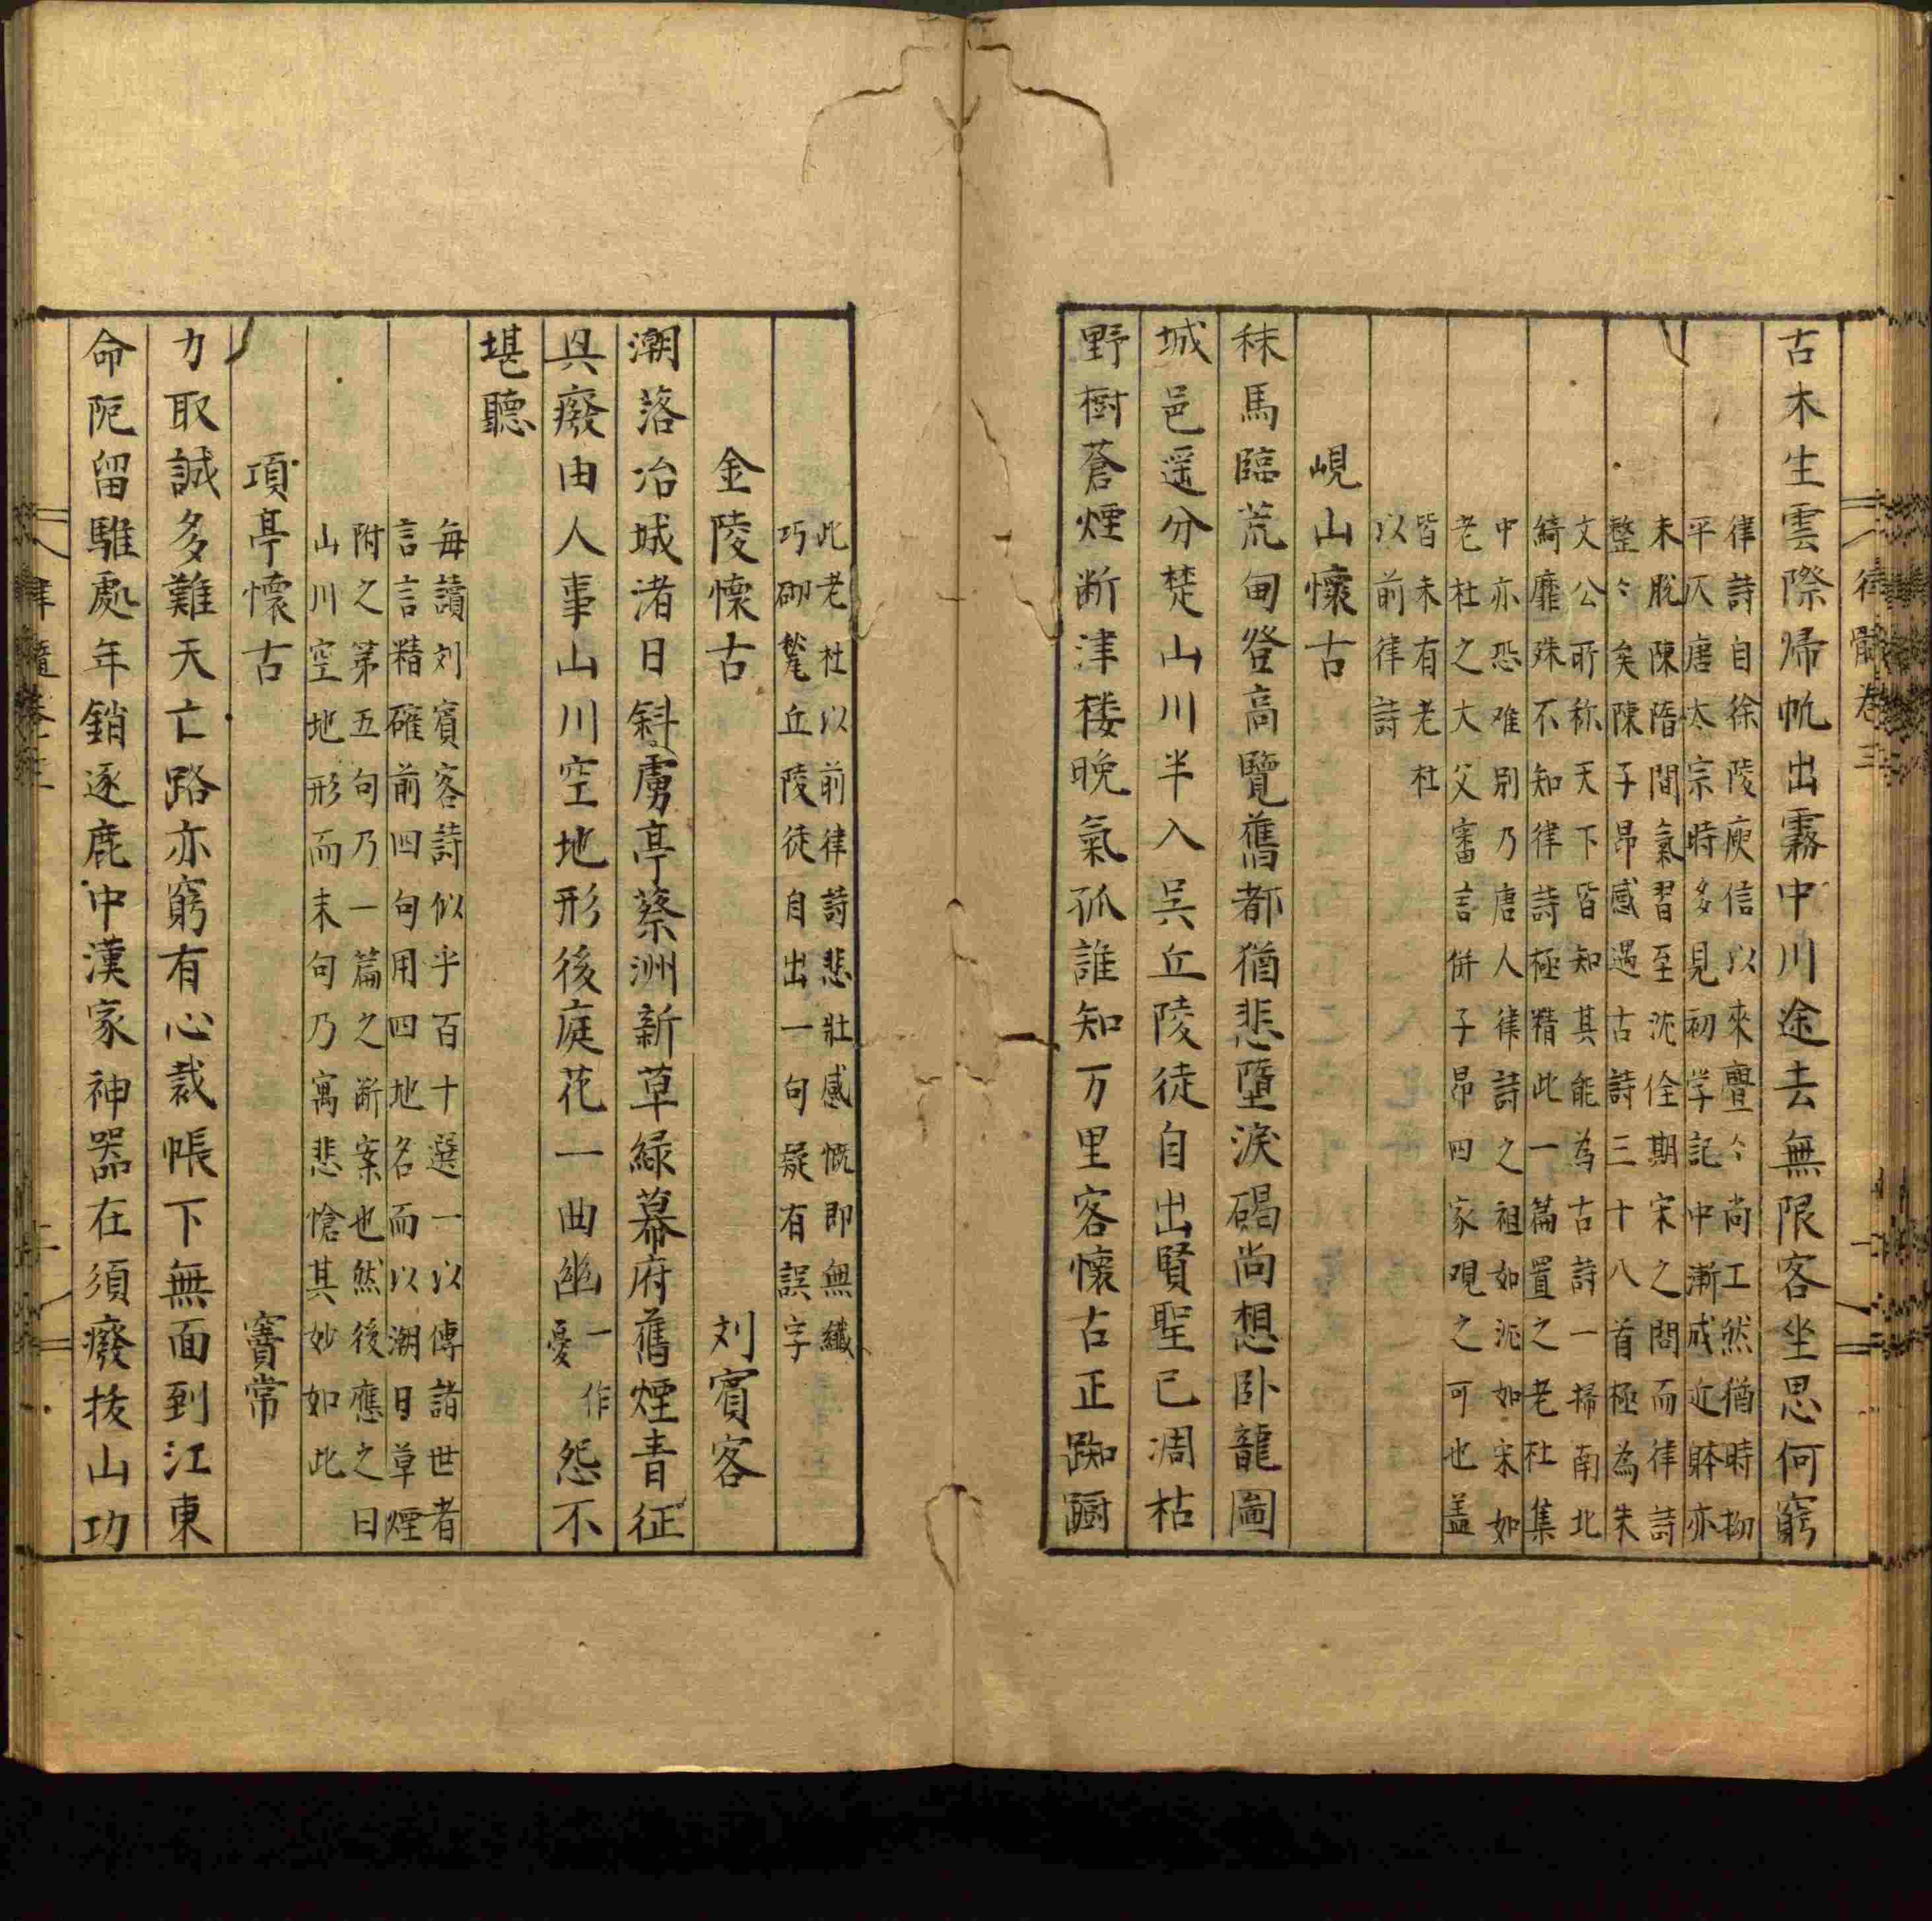 古木生雲際帰帆出霧中川途去無限客坐思何窮
律詩自徐陵庾信以來亹〻尚工然猶時拗
平仄唐太宗時多見初学記中漸成近躰亦
未脫陳隋間氣習至沈佺期宋之問而律詩
整〻矣陳子昂感遇古詩三十八首極為朱
文公所称天下皆知其能為古詩一掃南北
綺靡殊不知律詩極精此一篇置之老杜集
中亦恐难別乃唐人律詩之祖如沈如宋如
老杜之大父審言併子昂四家观之可也盖
皆未有老杜
以前律詩
峴山懷古
秣馬臨荒甸登高覽舊都猶悲墮淚碣尚想卧龍圖
城邑遥分楚山川半入吳丘陵徒自出賢聖已凋枯
野樹蒼煙断津楼晚氣孤誰知万里客懷古正踟蹰
此老杜以前律詩悲壯感慨即無纖
巧砌甃丘陵徒自出一句疑有誤字
金陵懷古 刘賓客
潮落冶城渚日斜虜亭蔡洲新草緑幕府舊煙青征
具癈由人事山川空地形後庭花一曲幽一作憂怨不
堪聽
每讀刘賓客詩似乎百十選一以傳諸世者
言言精確前四句用四地名而以潮日草煙
附之第五句乃一篇之断案也然後應之曰
山川空地形而末句乃寓悲愴其妙如此
項亭懷古 竇常
力取誠多難天亡路亦窮有心裁帳下無面到江東
命厄留騅處年銷逐鹿中漢家神器在須癈拔山功